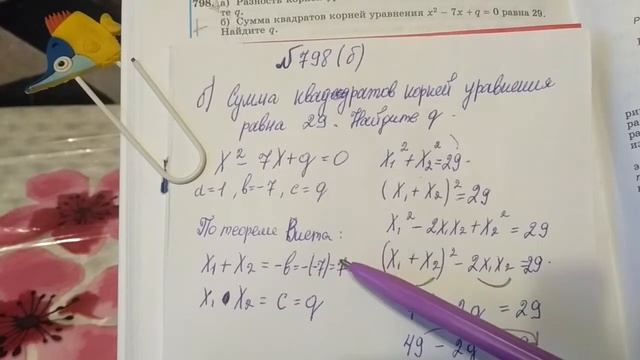 798. а) Разность корней
те q.
б) Сумма квадратов корней уравнения x² − 7x + q = 0 равна 29.
Найдите q.
№798(б)
б) Сумма квадратов корней уравнения
равна 29. Найдите q.
x² − 7x + q = 0
a=1, b=−7, c=q
По теореме Виета:
x₁ + x₂ = −b = −(−7) = 7
x₁ • x₂ = c = q
x₁² + x₂² = 29.
(x₁ + x₂)² = 29
x₁² − 2x₁x₂ + x₂² = 29
(x₁ + x₂)² − 2x₁x₂ = 29.
2q = 29
49 − 2q